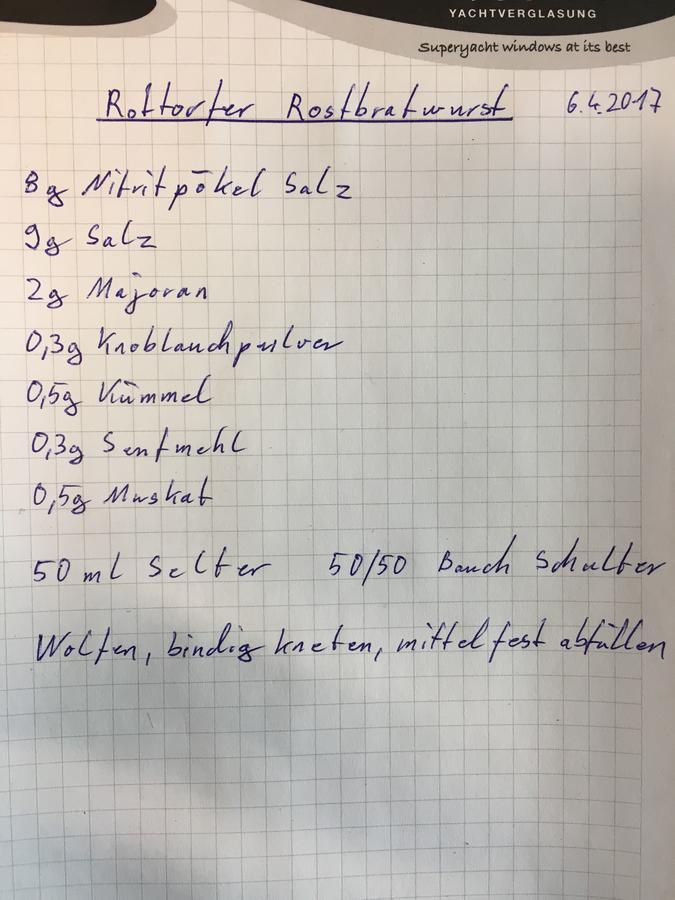 YACHTVERGLASUNG
Superyacht windows at its best
Rottorfer Rostbratwurst 6.4.2017
8g Nitritpökel Salz
9g Salz
2g Majoran
0,3g Knoblauchpulver
0,5g Kümmel
0,3g Senfmehl
0,5g Muskat
50 ml Selter 50/50 Bauch Schulter
Wolfen, bindig kneten, mittelfest abfüllen